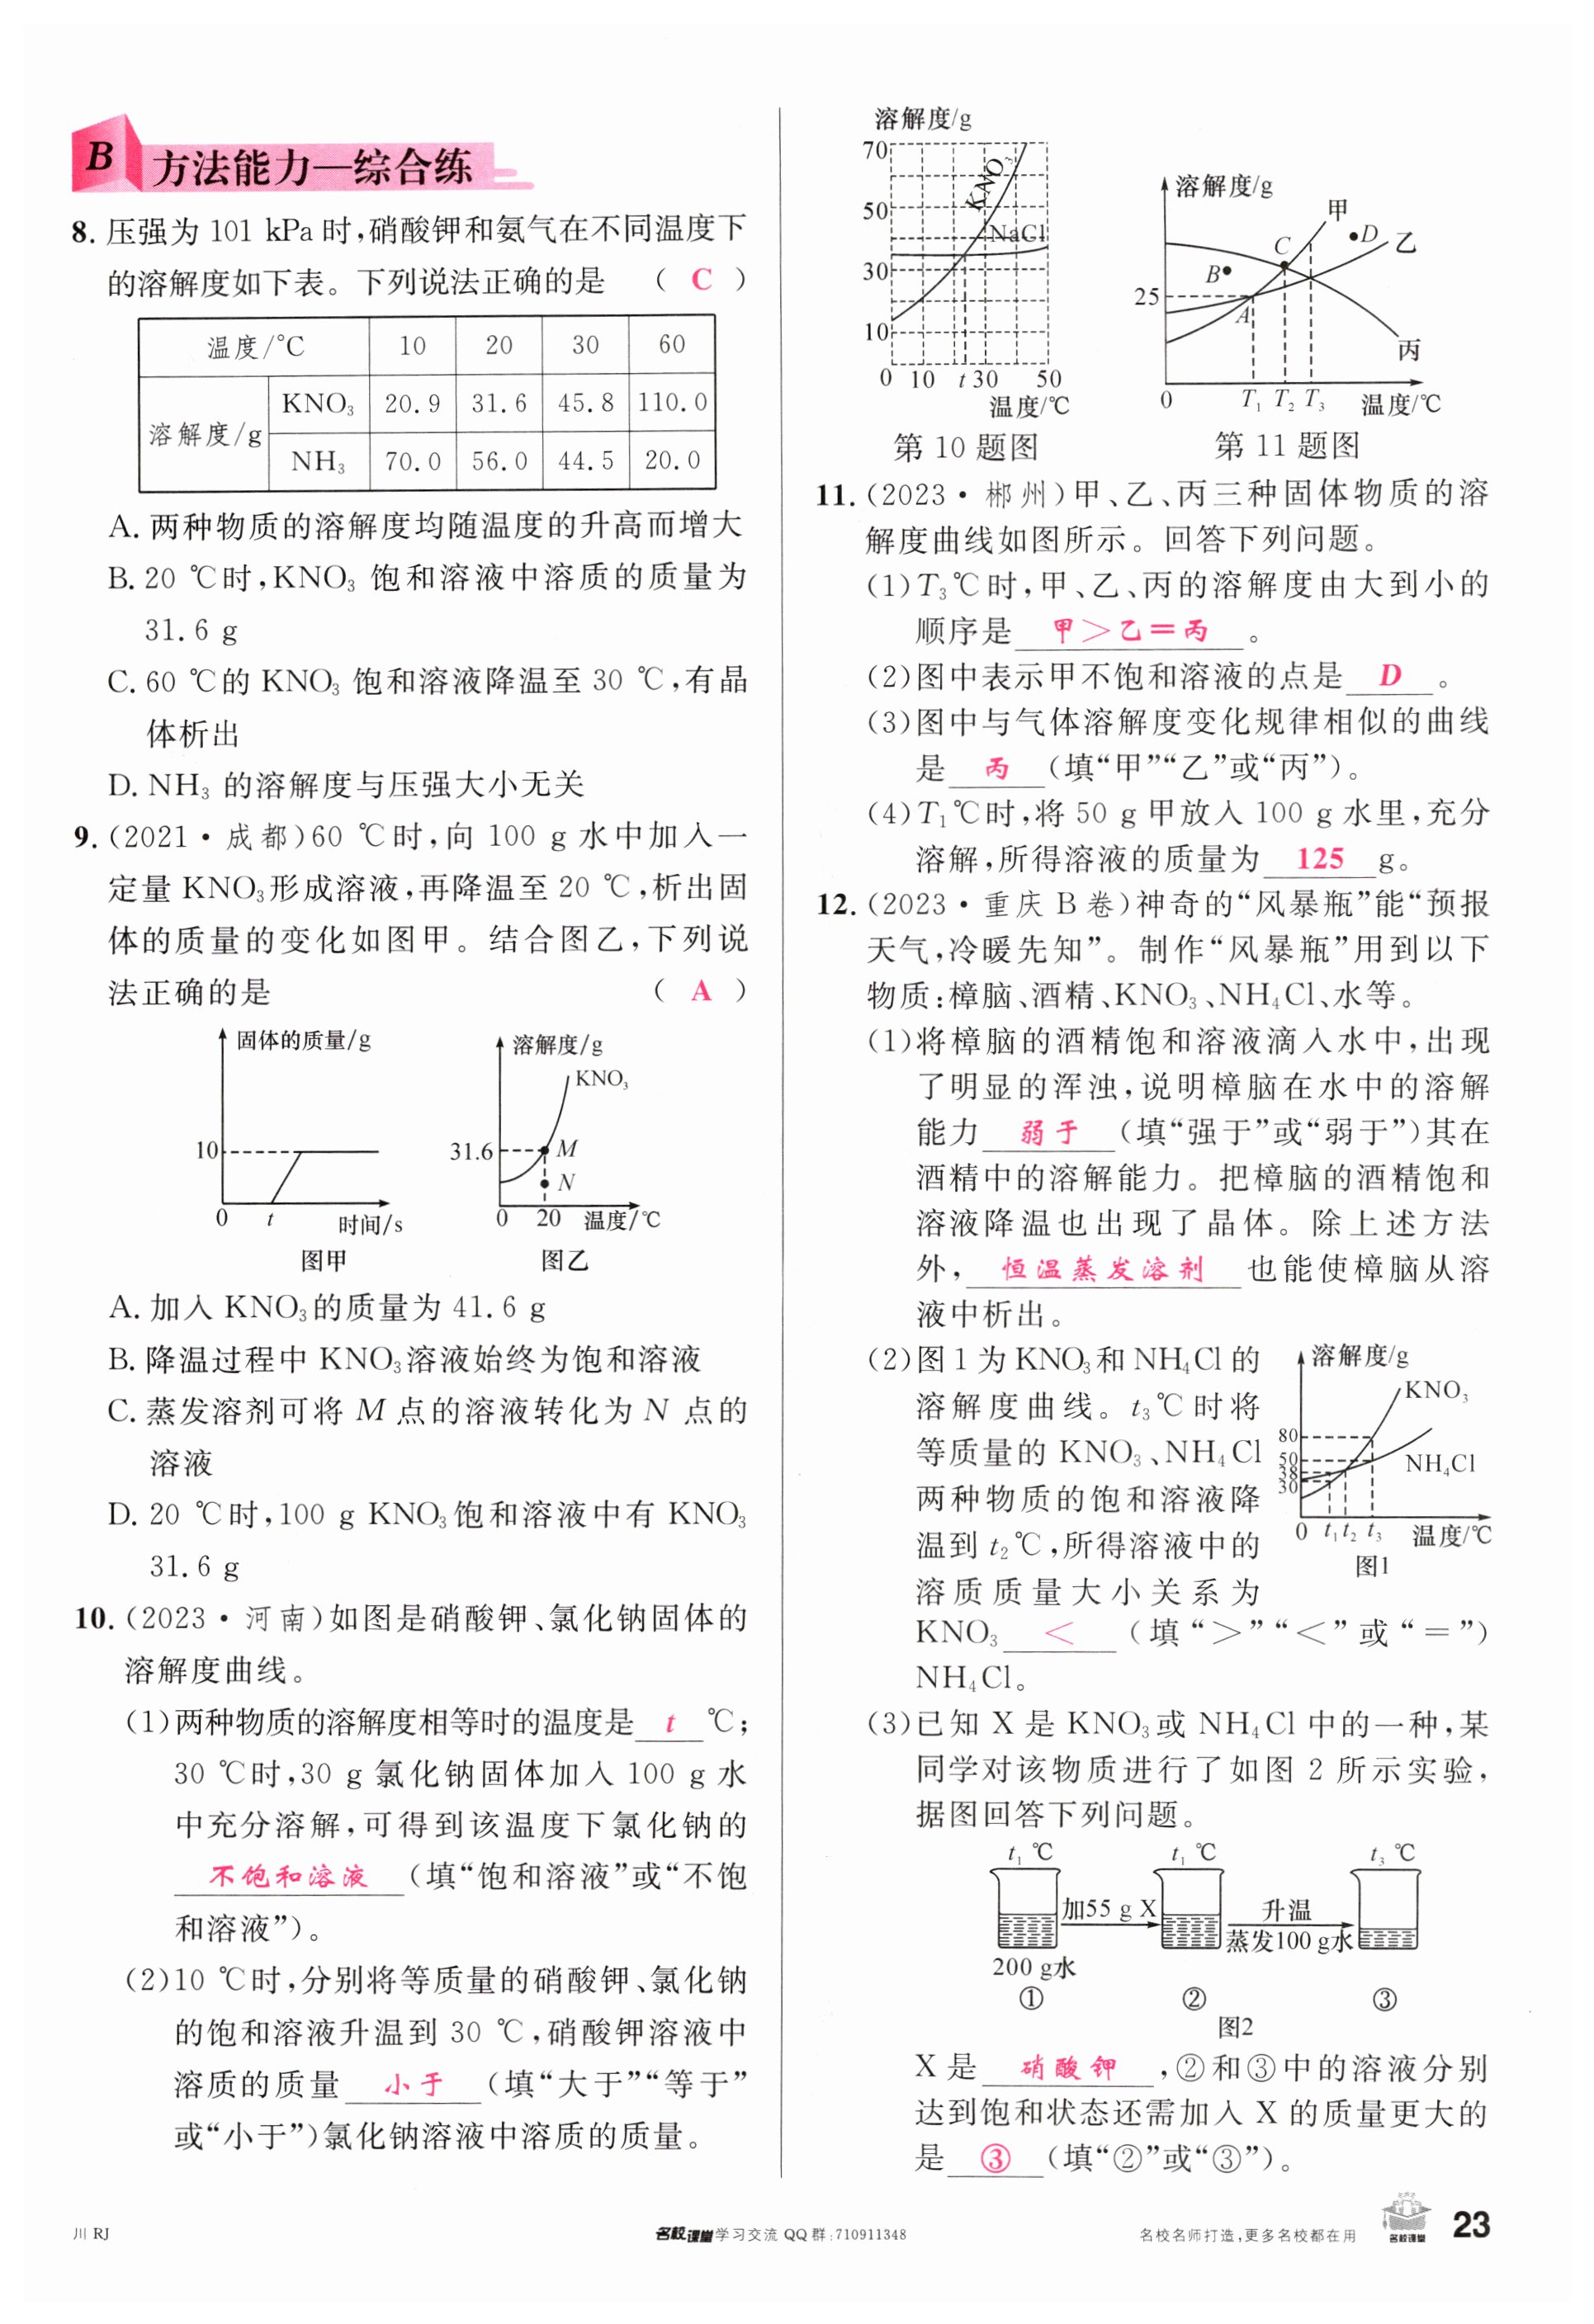 B 方法能力—综合练
8. 压强为 101 kPa 时,硝酸钾和氨气在不同温度下
的溶解度如下表。下列说法正确的是 ( C )
温度/℃ 10 20 30 60
溶解度/g KNO₃ 20.9 31.6 45.8 110.0
NH₃ 70.0 56.0 44.5 20.0
A. 两种物质的溶解度均随温度的升高而增大
B. 20 ℃时,KNO₃ 饱和溶液中溶质的质量为
31.6 g
C. 60 ℃的 KNO₃ 饱和溶液降温至 30 ℃,有晶
体析出
D. NH₃ 的溶解度与压强大小无关
9. (2021·成都)60 ℃时,向 100 g 水中加入一
定量 KNO₃形成溶液,再降温至 20 ℃,析出固
体的质量的变化如图甲。结合图乙,下列说
法正确的是 ( A )
固体的质量/g
10
0 t 时间/s
图甲
溶解度/g
KNO₃
31.6 M
N
0 20 温度/℃
图乙
A. 加入 KNO₃的质量为 41.6 g
B. 降温过程中 KNO₃溶液始终为饱和溶液
C. 蒸发溶剂可将 M 点的溶液转化为 N 点的
溶液
D. 20 ℃时,100 g KNO₃饱和溶液中有 KNO₃
31.6 g
10. (2023·河南)如图是硝酸钾、氯化钠固体的
溶解度曲线。
(1)两种物质的溶解度相等时的温度是 t ℃;
30 ℃时,30 g 氯化钠固体加入 100 g 水
中充分溶解,可得到该温度下氯化钠的
不饱和溶液 (填“饱和溶液”或“不饱
和溶液”)。
(2)10 ℃时,分别将等质量的硝酸钾、氯化钠
的饱和溶液升温到 30 ℃,硝酸钾溶液中
溶质的质量 小于 (填“大于”“等于”
或“小于”)氯化钠溶液中溶质的质量。
溶解度/g
70
KNO₃
50
NaCl
30
10
0 10 t 30 50
温度/℃
第 10 题图
溶解度/g
甲
D 乙
C
B
25
A
丙
0 T₁ T₂ T₃ 温度/℃
第 11 题图
11. (2023·郴州)甲、乙、丙三种固体物质的溶
解度曲线如图所示。回答下列问题。
(1)T₃℃时,甲、乙、丙的溶解度由大到小的
顺序是 甲＞乙＝丙 。
(2)图中表示甲不饱和溶液的点是 D 。
(3)图中与气体溶解度变化规律相似的曲线
是 丙 (填“甲”“乙”或“丙”)。
(4)T₁℃时,将 50 g 甲放入 100 g 水里,充分
溶解,所得溶液的质量为 125 g。
12. (2023·重庆 B 卷)神奇的“风暴瓶”能“预报
天气,冷暖先知”。制作“风暴瓶”用到以下
物质:樟脑、酒精、KNO₃、NH₄Cl、水等。
(1)将樟脑的酒精饱和溶液滴入水中,出现
了明显的浑浊,说明樟脑在水中的溶解
能力 弱于 (填“强于”或“弱于”)其在
酒精中的溶解能力。把樟脑的酒精饱和
溶液降温也出现了晶体。除上述方法
外, 恒温蒸发溶剂 也能使樟脑从溶
液中析出。
(2)图 1 为 KNO₃和 NH₄Cl 的
溶解度曲线。t₃℃时将
等质量的 KNO₃、NH₄Cl
两种物质的饱和溶液降
温到 t₂℃,所得溶液中的
溶质质量大小关系为
KNO₃ ＜ (填“＞”“＜”或“＝”)
NH₄Cl。
溶解度/g
KNO₃
80
50
38
30
NH₄Cl
0 t₁ t₂ t₃ 温度/℃
图1
(3)已知 X 是 KNO₃或 NH₄Cl 中的一种,某
同学对该物质进行了如图 2 所示实验,
据图回答下列问题。
t₁ ℃ t₁ ℃ t₃ ℃
加55 g X 升温
蒸发100 g水
200 g水
① ② ③
图2
X 是 硝酸钾 ,②和③中的溶液分别
达到饱和状态还需加入 X 的质量更大的
是 ③ (填“②”或“③”)。
川 RJ
名校课堂学习交流 QQ 群:710911348
名校名师打造,更多名校都在用
名校课堂
23